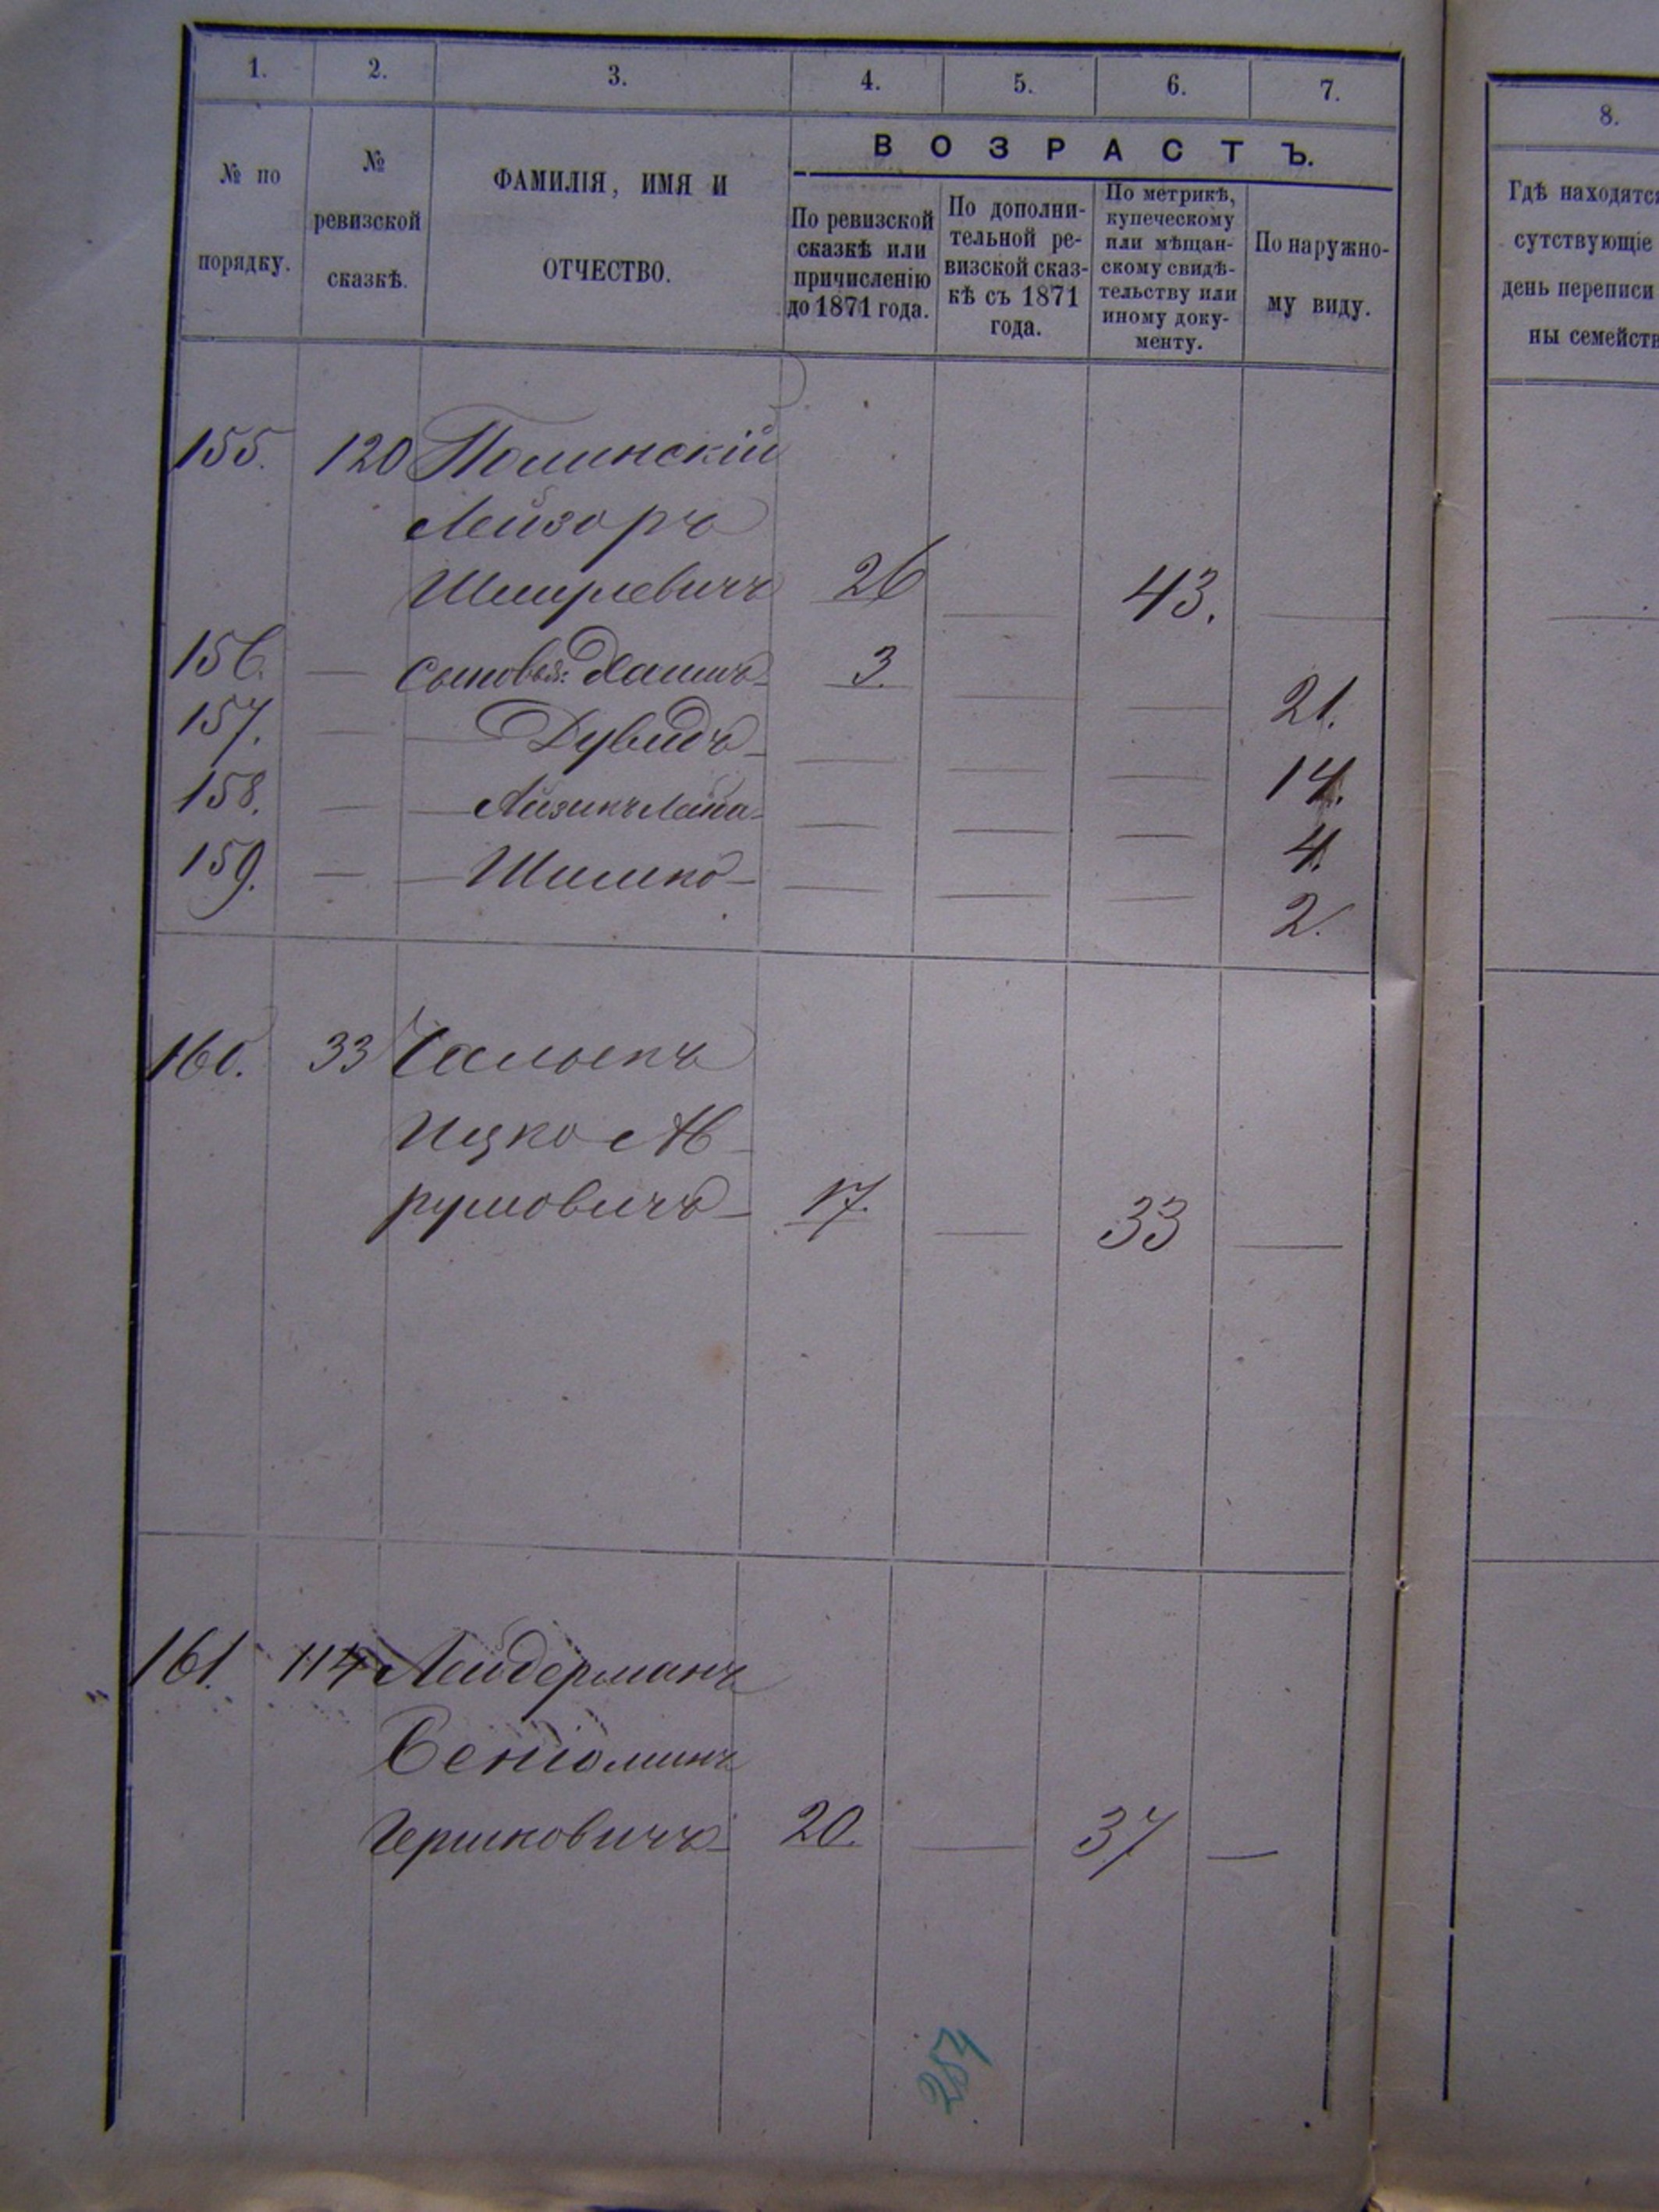 1. 2. 3. 4. 5. 6. 7.
8.
№ по порядку.
№ ревизской сказкѣ.
ФАМИЛІЯ, ИМЯ И ОТЧЕСТВО.
ВОЗРАСТЪ.
По ревизской сказкѣ или причисленію до 1871 года.
По дополни-
тельной ре-
визской сказ-
кѣ съ 1871
года.
По метрикѣ,
купеческому
или мѣщан-
скому свидѣ-
тельству или
иному доку-
менту.
По наружно-
му виду.
Гдѣ находятся
сутствующіе
день переписи
ны семейств
155. 120
Лейзоръ
Шмулевичъ 26 — 43. —
156. — сыновья: Хаимъ 3. — — 21.
157. — — Дувидъ — — — 14.
158. — — Айзикъ Лейба — — — 4.
159. — — Шимко — — — 2.
160. 33
Ицко Аб-
румовичъ 17. — 33 —
161. 114 Лейдерманъ
Беніоминъ
Гершковичъ 20. — 37 —
254